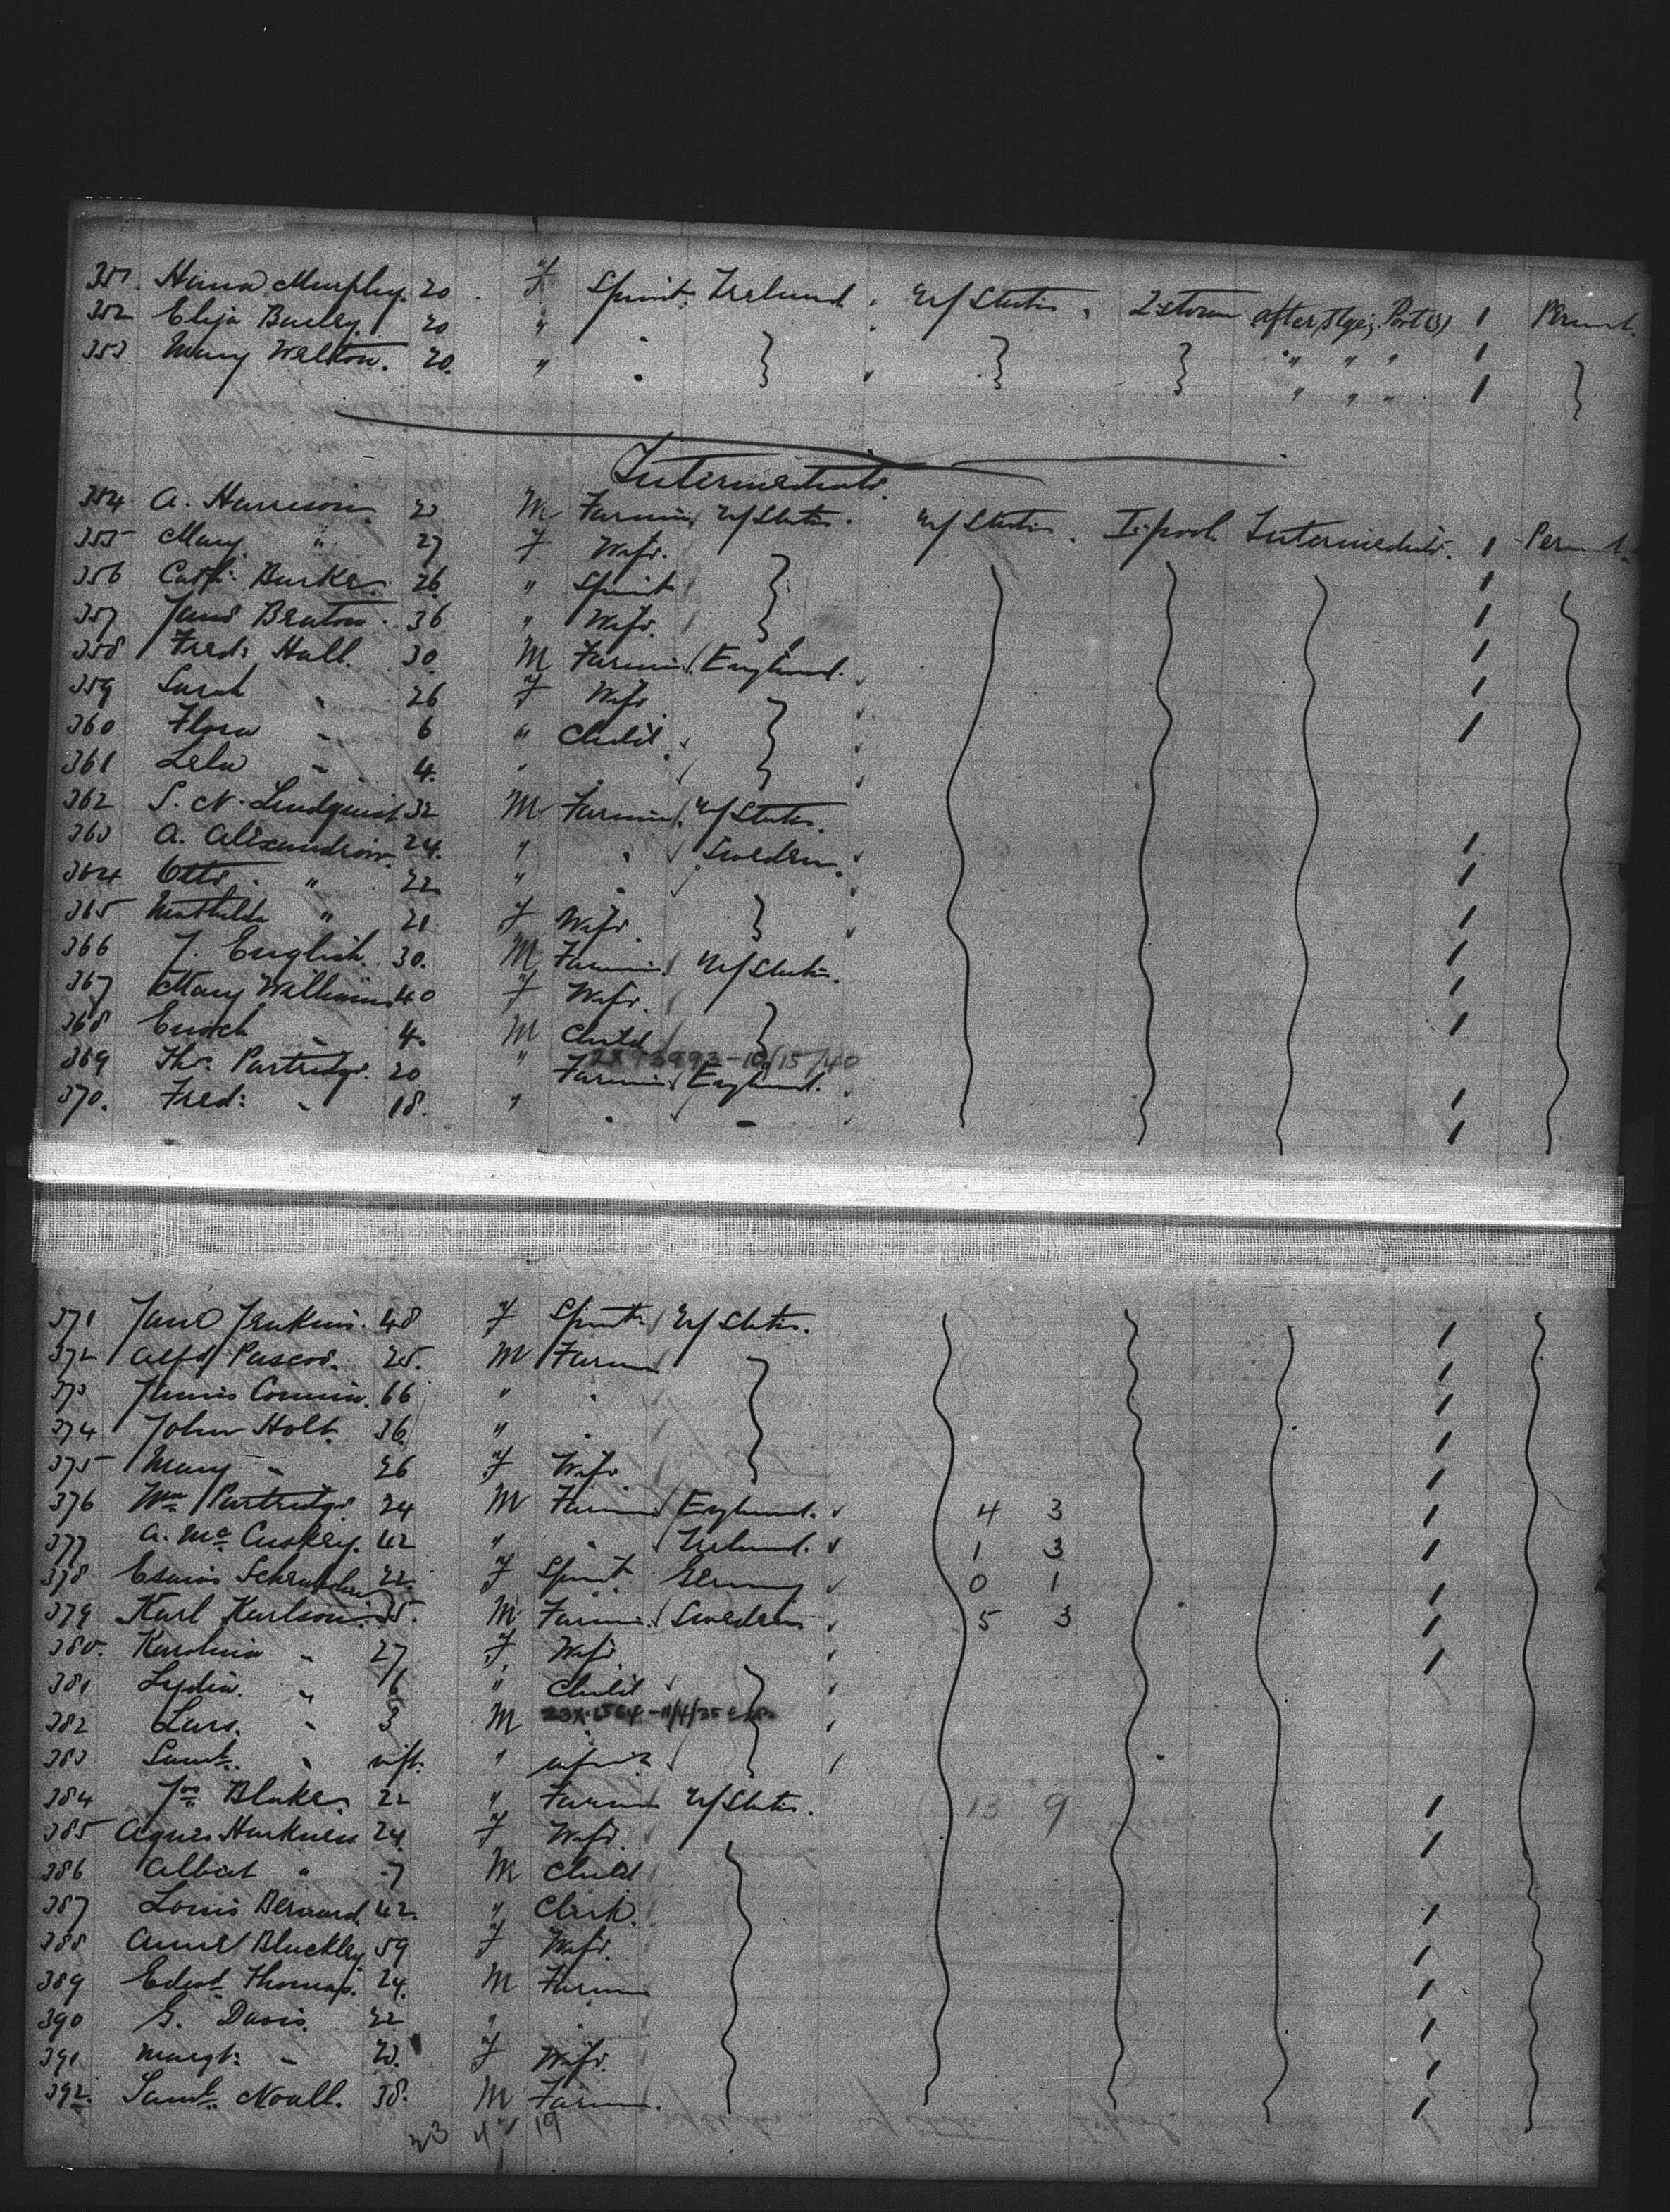 351. Murphy. 20. F Spinst. Ireland. U/States. Q'stown after, Stge, Port (3) 1 Permt.
352 Eliza 20 " " " " 1
353 Mary Walton. 20. " " " " 1
Intermediate.
354 A. Harrison. M Farmer U/States. U/States. L'pool. Intermediate. 1 Permt.
355 Mary " 27 F Wife. 1
356 Cath: Burke. 26 " Spinst 1
357 Jane 36 " Wife. 1
358 Fred: Hall. 30 M Farmer England. 1
359 Sarah " 26 F Wife 1
360 Flora " 6 " Child 1
361 Lela " 4. "
362 S. N. Lindquist 32 M Farmer U/States.
363 A. 24. " " Sweden. 1
364 Otto " 22 " " 1
365 Mathilda " 21 F Wife. 1
366 J. English. 30. M Farmer U/States. 1
367 Mary Williams 40 F Wife. 1
368 Enoch " 4. M Child 1
10/15/40
369 Thos. Partridge. 20 " Farmer England. 1
370. Fred: " 18. " " " 1
371 Jane Jenkins. 48 F Spinst. U/States. 1
372 Alfd. Pascoe. 25. M Farmer 1
373 James 66 " " 1
374 John Holt. 36. " " 1
375 Mary " 26 F Wife 1
376 Wm Partridge 24 M Farmer England. 4 3 1
377 A. Mc Cuskey. 42 " " Ireland. 1 3 1
378 22 F Spinst. Germany 0 1 1
379 Karl Karlson. 35. M Farmer Sweden 5 3 1
380. Karolina " 27 F Wife. 1
381 Lydia. " 6 " Child
382 Lars. " 3 M
383 Saml. " inft. " infant
384 Jas Blake. 22 " Farmer U/States. 13 9 1
385 Agnes Harkness 24 F Wife. 1
386 Albert " 7 M Child
387 Louis Bernard. 42. " Clerk. 1
388 Anne Bluckley 59 F Wife. 1
389 Edwd. Thomas. 24. M Farmer 1
390 G. Davis. 22 " " 1
391 Margt: " F Wife. 1
392. Saml. Noall. 38. M Farmer. 1
19